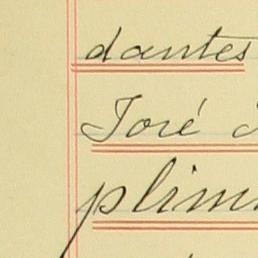 dantes
José
plim